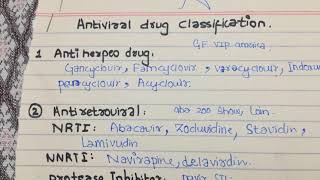 Antiviral drug classification.
1 Antiherpeo drug. GF VIP america,
Gancyclovir, Famcyclovir, valacyclovir, Indoxur
pencyclovir, Acyclovir.
② Antiretroviral: aba zoo Show, Lain.
NRTI: Abacavir, Zoduvidine, Stavidin,
Lamivudin
NNRTI: Navirapine, delavirdin.
Protease Inhibitor: